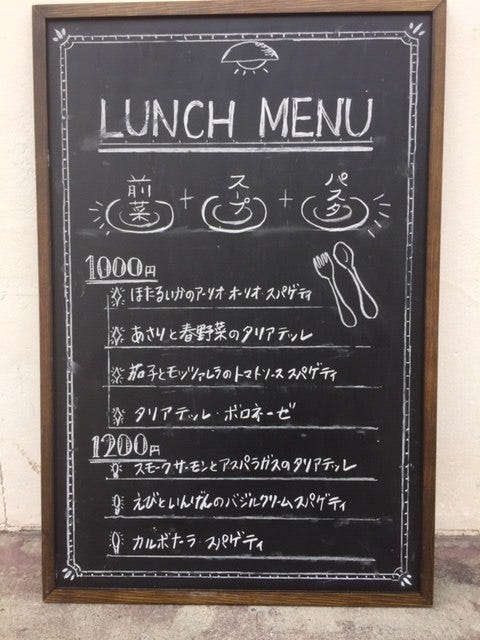 LUNCH MENU
前菜 + スープ + パスタ
1000円
ほたるいかのアーリオ オーリオ・スパゲティ
あさりと春野菜のタリアテッレ
茄子とモッツァレラのトマトソース スパゲティ
タリアテッレ・ボロネーゼ
1200円
スモークサーモンとアスパラガスのタリアテッレ
えびといんげんのバジルクリームスパゲティ
カルボナーラ・スパゲティ